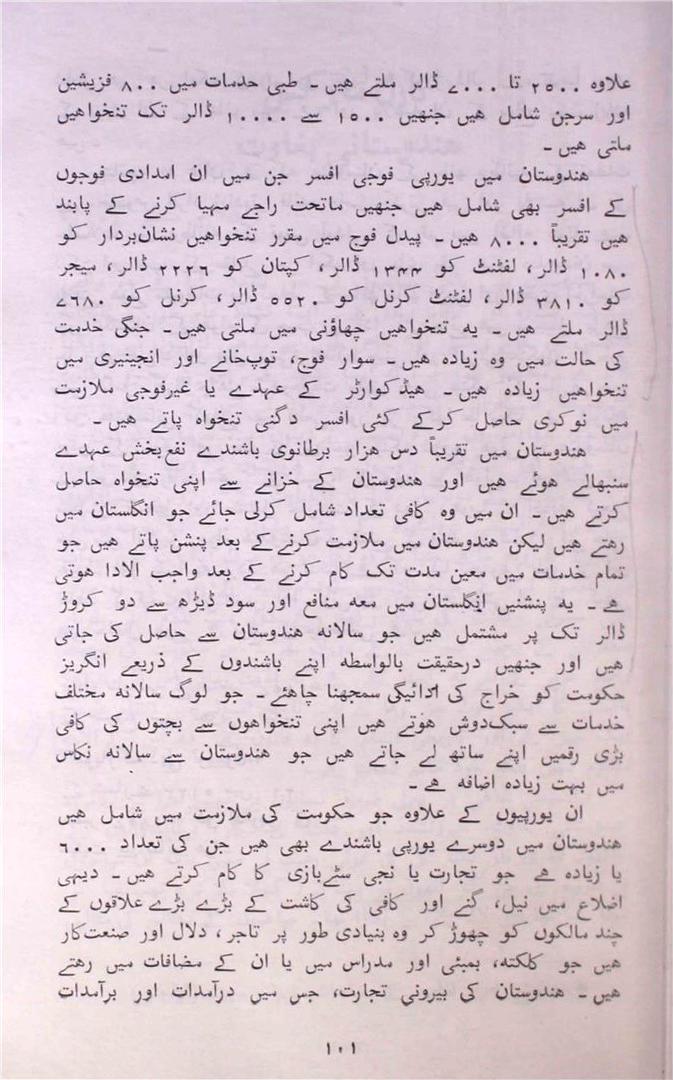 علاوہ ۲۵۰۰ تا ۷۰۰۰ ڈالر ملتے ہیں۔ طبی حدمات میں ۸۰۰ فزیشین
اور سرجن شامل ہیں جنہیں ۱۵۰۰ سے ۱۰۰۰۰ ڈالر تک تنخواہیں
ملتی ہیں۔
ہندوستان میں یورپی فوجی افسر جن میں ان امدادی فوجوں
کے افسر بھی شامل ہیں جنہیں ماتحت راجے مہیا کرنے کے پابند
ہیں تقریباً ۸۰۰۰ ہیں۔ پیدل فوج میں مقرر تنخواہیں نشان‌بردار کو
۱۰۸۰ ڈالر، لفٹنٹ کو ۱۳۴۴ ڈالر، کپتان کو ۲۲۲۶ ڈالر، میجر
کو ۳۸۱۰ ڈالر، لفٹنٹ کرنل کو ۵۵۲۰ ڈالر، کرنل کو ۷۶۸۰
ڈالر ملتے ہیں۔ یہ تنخواہیں چھاؤنی میں ملتی ہیں۔ جنگی خدمت
کی حالت میں وہ زیادہ ہیں۔ سوار فوج، توپ‌خانے اور انجینیری میں
تنخواہیں زیادہ ہیں۔ ہیڈکوارٹر کے عہدے یا غیرفوجی ملازمت
میں نوکری حاصل کرکے کئی افسر دگنی تنخواہ پاتے ہیں۔
ہندوستان میں تقریباً دس ہزار برطانوی باشندے نفع‌بخش عہدے
سنبھالے ہوئے ہیں اور ہندوستان کے خزانے سے اپنی تنخواہ حاصل
کرتے ہیں۔ ان میں وہ کافی تعداد شامل کرلی جائے جو انگلستان میں
رہتے ہیں لیکن ہندوستان میں ملازمت کرنے کے بعد پنشن پاتے ہیں جو
تمام خدمات میں معین مدت تک کام کرنے کے بعد واجب الادا ہوتی
ہے۔ یہ پنشنیں انگلستان میں معہ منافع اور سود ڈیڑھ سے دو کروڑ
ڈالر تک پر مشتمل ہیں جو سالانہ ہندوستان سے حاصل کی جاتی
ہیں اور جنہیں درحقیقت بالواسطہ اپنے باشندوں کے ذریعے انگریز
حکومت کو خراج کی ادائیگی سمجھنا چاہئے۔ جو لوگ سالانہ مختلف
خدمات سے سبک‌دوش ہوتے ہیں اپنی تنخواہوں سے بچتوں کی کافی
بڑی رقمیں اپنے ساتھ لے جاتے ہیں جو ہندوستان سے سالانہ نکاس
میں بہت زیادہ اضافہ ہے۔
ان یورپیوں کے علاوہ جو حکومت کی ملازمت میں شامل ہیں
ہندوستان میں دوسرے یورپی باشندے بھی ہیں جن کی تعداد ۶۰۰۰
یا زیادہ ہے جو تجارت یا نجی سٹے‌بازی کا کام کرتے ہیں۔ دیہی
اضلاع میں نیل، گنے اور کافی کی کاشت کے بڑے بڑے علاقوں کے
چند مالکوں کو چھوڑ کر وہ بنیادی طور پر تاجر، دلال اور صنعت‌کار
ہیں جو کلکتہ، بمبئی اور مدراس میں یا ان کے مضافات میں رہتے
ہیں۔ ہندوستان کی بیرونی تجارت، جس میں درآمدات اور برآمدات
۱۰۱